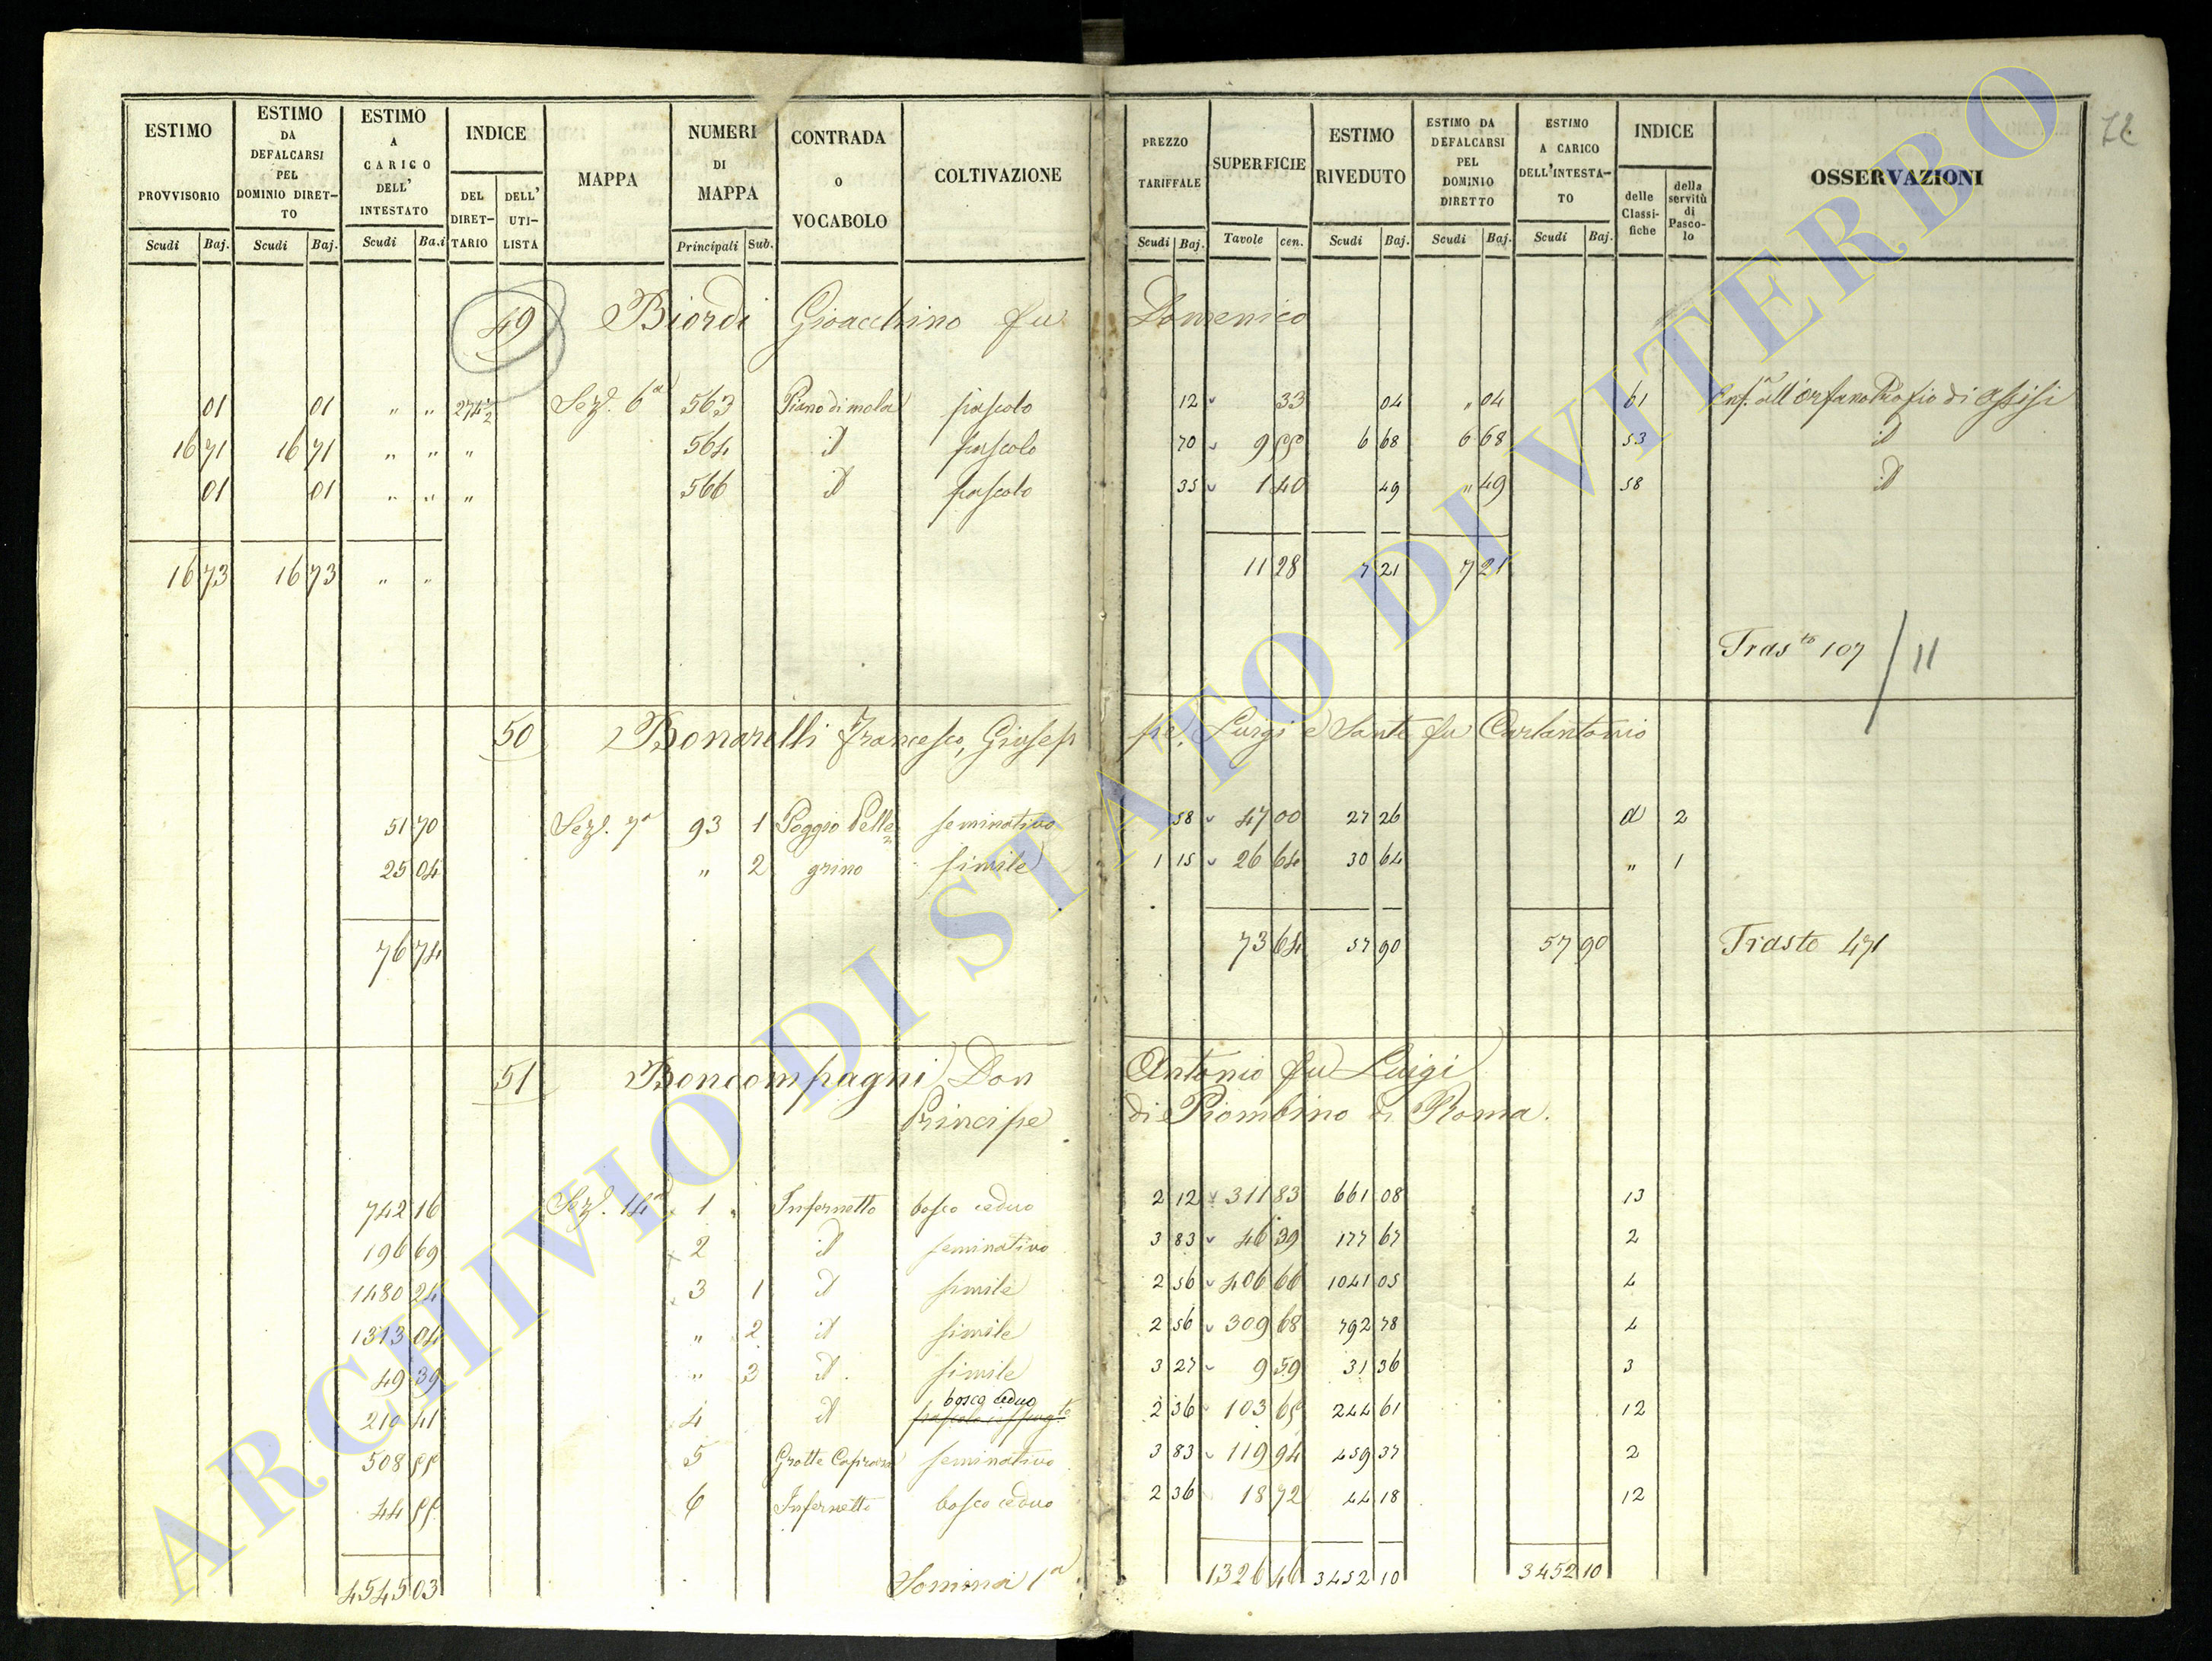 ESTIMO PROVVISORIO Scudi Baj. ESTIMO DA DEFALCARSI PEL DOMINIO DIRETTO Scudi Baj. ESTIMO A CARICO DELL' INTESTATO Scudi Baj. INDICE DEL DIRETTARIO DELL' UTILISTA MAPPA NUMERI DI MAPPA Principali Sub. CONTRADA O VOCABOLO COLTIVAZIONE PREZZO TARIFFALE Scudi Baj. SUPERFICIE Tavole cen. ESTIMO RIVEDUTO Scudi Baj. ESTIMO DA DEFALCARSI PEL DOMINIO DIRETTO Scudi Baj. ESTIMO A CARICO DELL'INTESTATO Scudi Baj. INDICE delle Classifiche della servitù di Pascolo OSSERVAZIONI
72
49 Biordi Gioacchino fu Domenico
01 01 " " 274½ Sez. 6a 563 Piano di mola pascolo 12 33 04 " 04 61 Enf. all'Orfanotrofio di Assisi
16 71 16 71 " " " 564 id pascolo 70 9 55 6 68 6 68 53 id
01 01 " " " 566 id pascolo 35 1 40 49 " 49 58 id
16 73 16 73 " " 11 28 7 21 7 21
Trasto 107 / 11
50 Bonarelli Francesco, Giuseppe, Luigi e Sante fu Carlantonio
51 70 Sez. 7a 93 1 Poggio Pelle= seminativo 58 47 00 27 26 d 2
25 04 " 2 grino simile 1 15 26 64 30 64 " 1
76 74 73 64 57 90 57 90 Trasto 471
51 Boncompagni Don Antonio fu Luigi
Principe di Piombino in Roma.
742 16 Sez. 14a 1 " Infernetto bosco ceduo 2 12 311 83 661 08 13
196 69 2 id seminativo 3 83 46 39 177 67 2
1480 24 3 1 id simile 2 56 406 66 1041 05 4
1313 04 " 2 id simile 2 56 309 68 792 78 4
49 39 " 3 id. simile 3 27 9 59 31 36 3
bosco ceduo
210 41 4 id 2 36 103 65 244 61 12
508 55 5 Grotte seminativo 3 83 119 94 459 37 2
44 55 6 Infernetto bosco ceduo 2 36 18 72 44 18 12
4545 03 Somma 1a 1326 46 3452 10 3452 10
ARCHIVIO DI STATO DI VITERBO